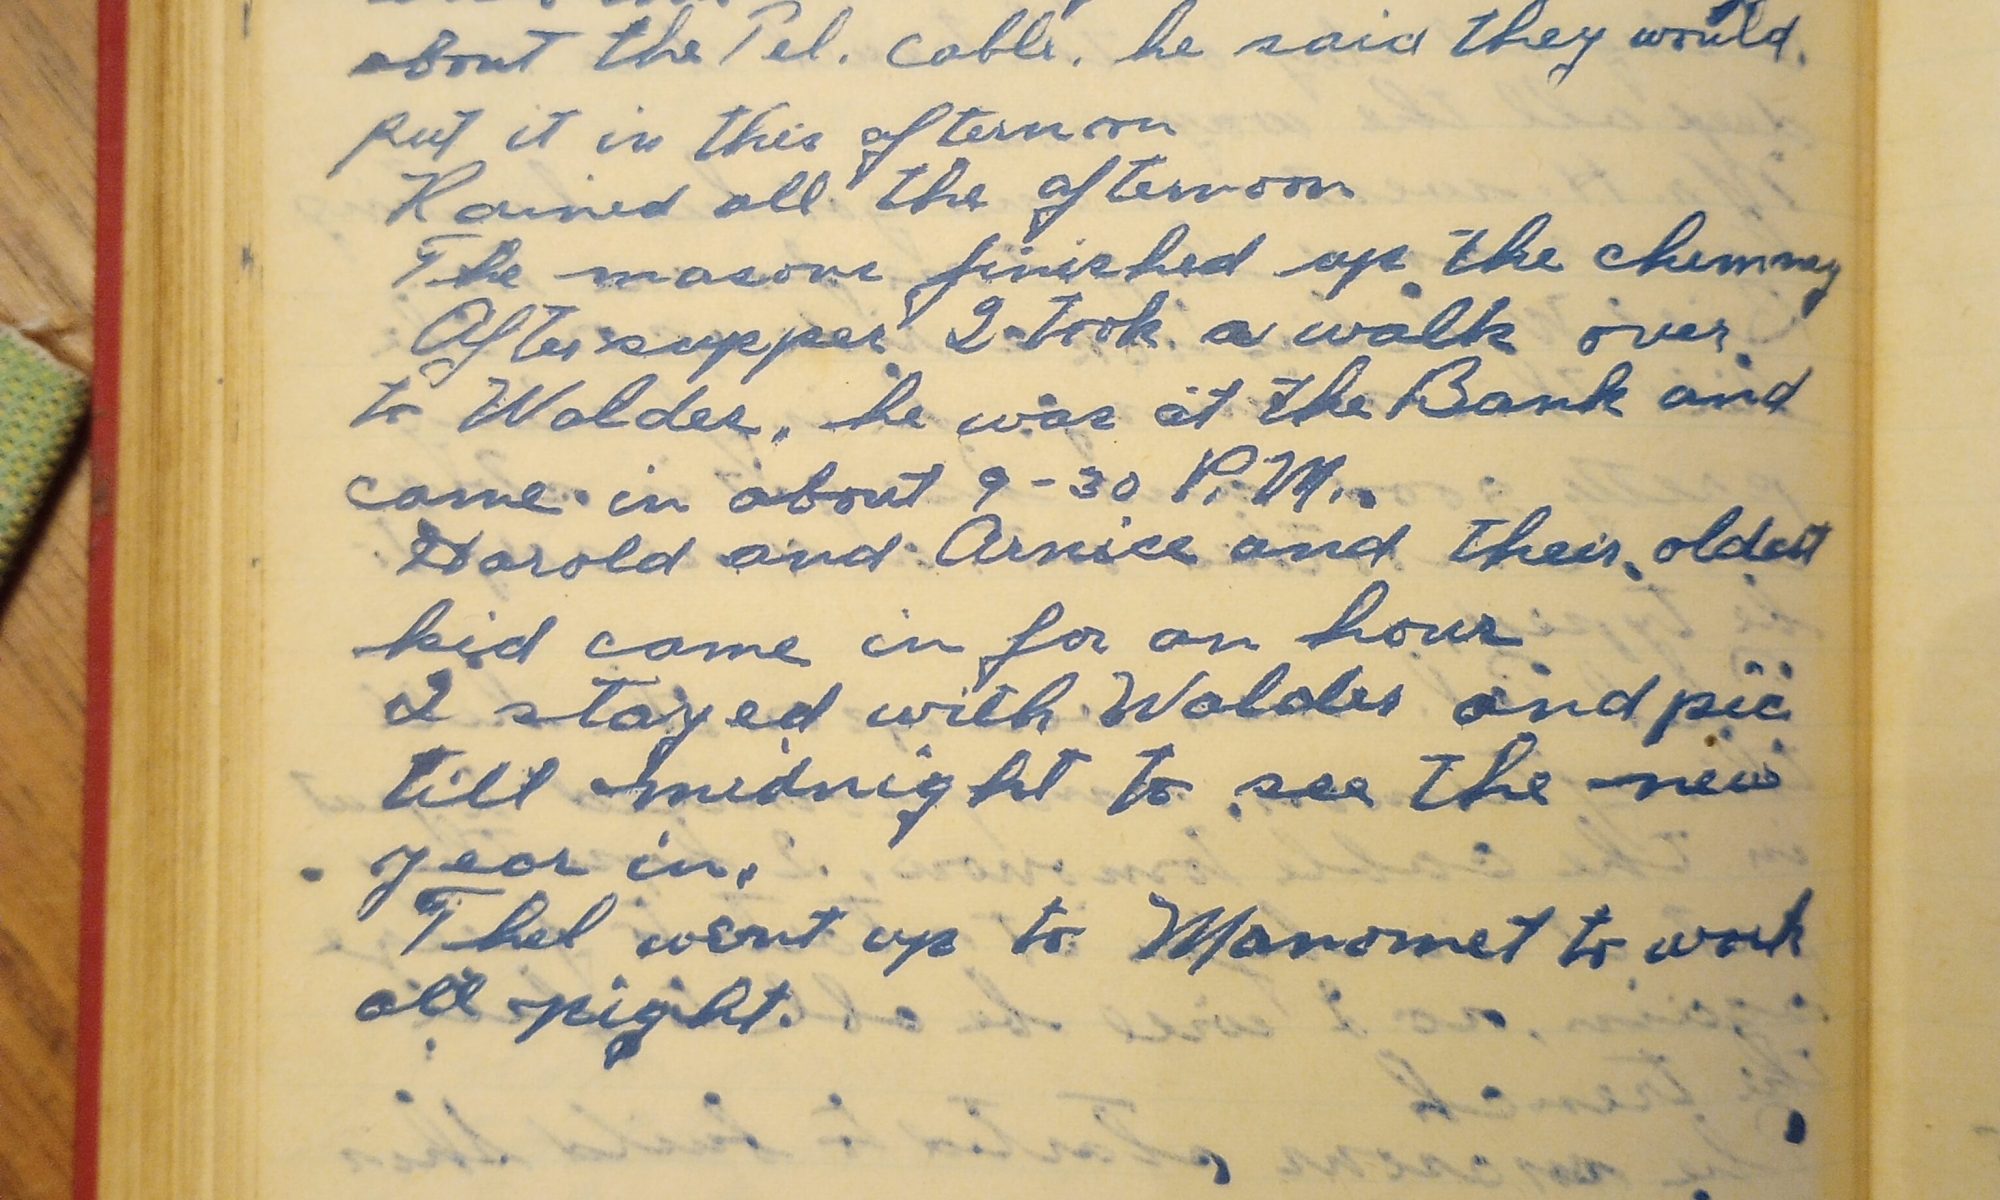 about the Tel. cable. he said they would.
put it in this afternoon
Rained all the afternoon
The masons finished up the chimney
After supper I took a walk over
to Waldes, he was at the Bank and
came in about 9-30 P.M.
Harold and Arnice and their oldest
kid came in for an hour
I stayed with Waldes and pic
till midnight to see the new
year in.
Thel went up to Manomet to work
all night.